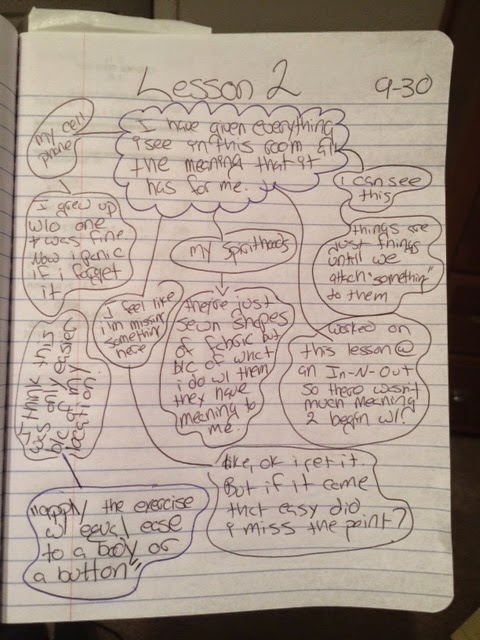 Lesson 2
9-30
I have given everything
I see in this room all
the meaning that it
has for me.
my cell
phone
I grew up
w/o one
& was fine
Now i panic
if i forget
it
I can see
this
things are
just things
until we
attach "something"
to them
my spirithoods
they're just
sewn shapes
of fabric but
b/c of what
i do w/ them
they have
meaning to
me.
I feel like
i'm missing
something
here
worked on
this lesson @
an In-N-Out
so there wasn't
much meaning
2 begin w/!
I think this
was only easier
b/c of my
location!
like, ok i get it.
But if it came
that easy did
I miss the point?
"apply the exercise
w/ equal ease
to a body or
a button"